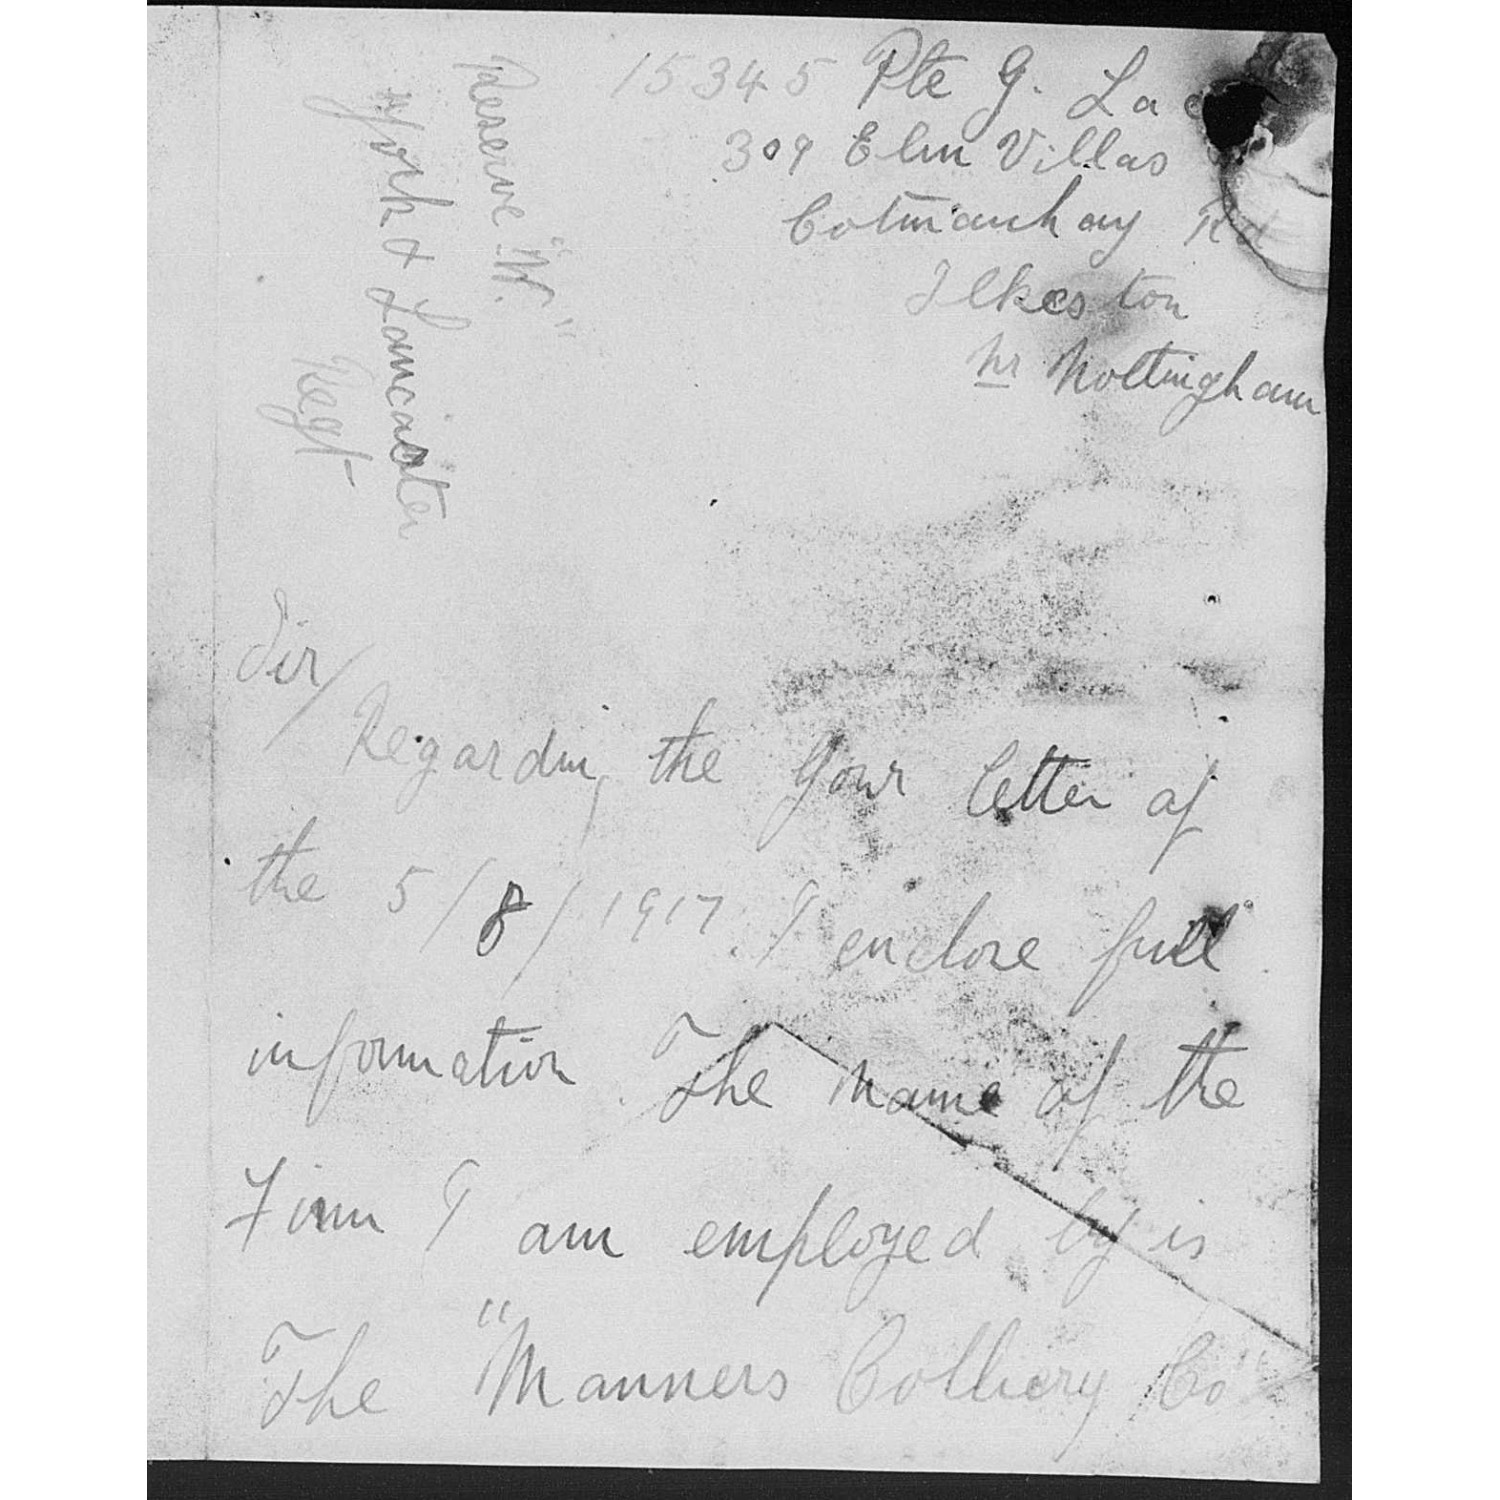 15345 Pte G. La
309 Elm Villas
Cotmanhay Rd
Ilkeston
nr Nottingham
Reserve "W."
York & Lancaster
Regt
Sir/
Regarding the Your letter of
the 5/8/1917. I enclose full
information. The name of the
Firm I am employed by is
The "Manners Colliery Co"